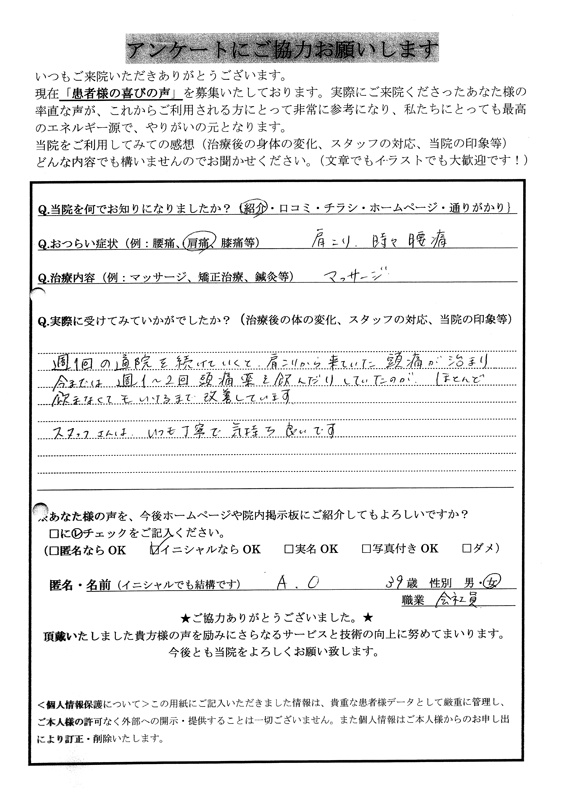 アンケートにご協力お願いします
いつもご来院いただきありがとうございます。
現在「患者様の喜びの声」を募集いたしております。実際にご来院くださったあなた様の
率直な声が、これからご利用される方にとって非常に参考になり、私たちにとっても最高
のエネルギー源で、やりがいの元となります。
当院をご利用してみての感想（治療後の身体の変化、スタッフの対応、当院の印象等）
どんな内容でも構いませんのでお聞かせください。（文章でもイラストでも大歓迎です！）
Q.当院を何でお知りになりましたか？（紹介・口コミ・チラシ・ホームページ・通りがかり）
Q.おつらい症状（例：腰痛、肩痛、膝痛等） 肩こり、時々腰痛
Q.治療内容（例：マッサージ、矯正治療、鍼灸等） マッサージ
Q.実際に受けてみていかがでしたか？（治療後の体の変化、スタッフの対応、当院の印象等）
週1回の通院を続けていくと、肩こりから来ていた頭痛が治まり
今までは週1〜2回頭痛薬を飲んだりしていたのが、ほとんど
飲まなくてもいけるまで改善しています
スタッフさんは、いつも丁寧で気持ち良いです
※あなた様の声を、今後ホームページや院内掲示板にご紹介してもよろしいですか？
□に☑チェックをご記入ください。
（□匿名ならOK ☑イニシャルならOK □実名OK □写真付きOK □ダメ）
匿名・名前（イニシャルでも結構です） A.O 39歳 性別 男・女
職業 会社員
★ご協力ありがとうございました。★
頂戴いたしました貴方様の声を励みにさらなるサービスと技術の向上に努めてまいります。
今後とも当院をよろしくお願い致します。
＜個人情報保護について＞この用紙にご記入いただきました情報は、貴重な患者様データとして厳重に管理し、
ご本人様の許可なく外部への開示・提供することは一切ございません。また個人情報はご本人様からのお申し出
により訂正・削除いたします。